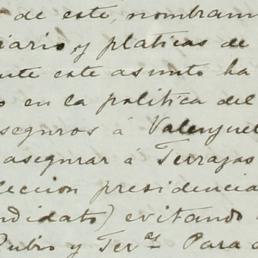 de este nombram
iario, y platicas de
nte este asunto ha
o en la politica del
seguros á Valenzuel
asegurar á Terrazas
lección presidencia
ndidato) evitando
Rubio y Ter.as Para